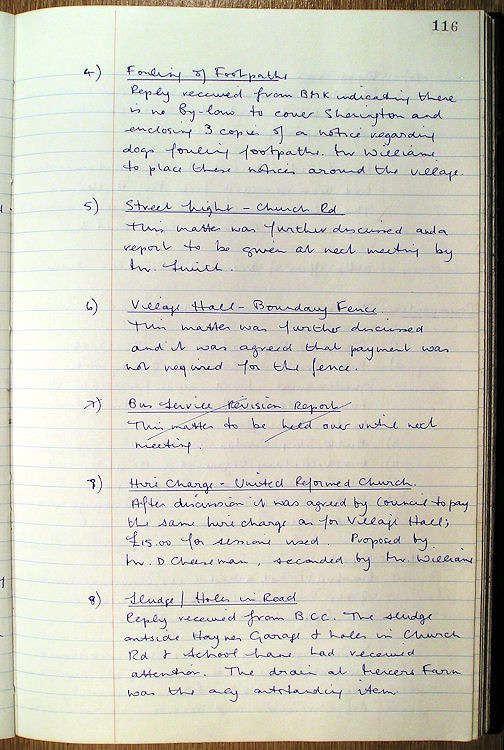 116
4) Fouling of Footpaths
Reply received from BMK indicating there
is no By-law to cover Sherington and
enclosing 3 copies of a notice regarding
dogs fouling footpaths. Mr Williams
to place these notices around the village.
5) Street Light - Church Rd
This matter was further discussed and a
report to be given at next meeting by
Mr. Smith.
6) Village Hall - Boundary Fence
This matter was further discussed
and it was agreed that payment was
not required for the fence.
7) Bus Service Revision Report
This matter to be held over until next
meeting.
8) Hire Charge - United Reformed Church.
After discussion it was agreed by Council to pay
the same hire charge as for Village Hall;
£15.00 for sessions used. Proposed by
Mr. D Cheeseman, seconded by Mr. Williams
9) Sludge / Holes in Road
Reply received from B.C.C. The sludge
outside Haynes Garage & holes in Church
Rd & School Lane had received
attention. The drain at Mercers Farm
was the only outstanding item.